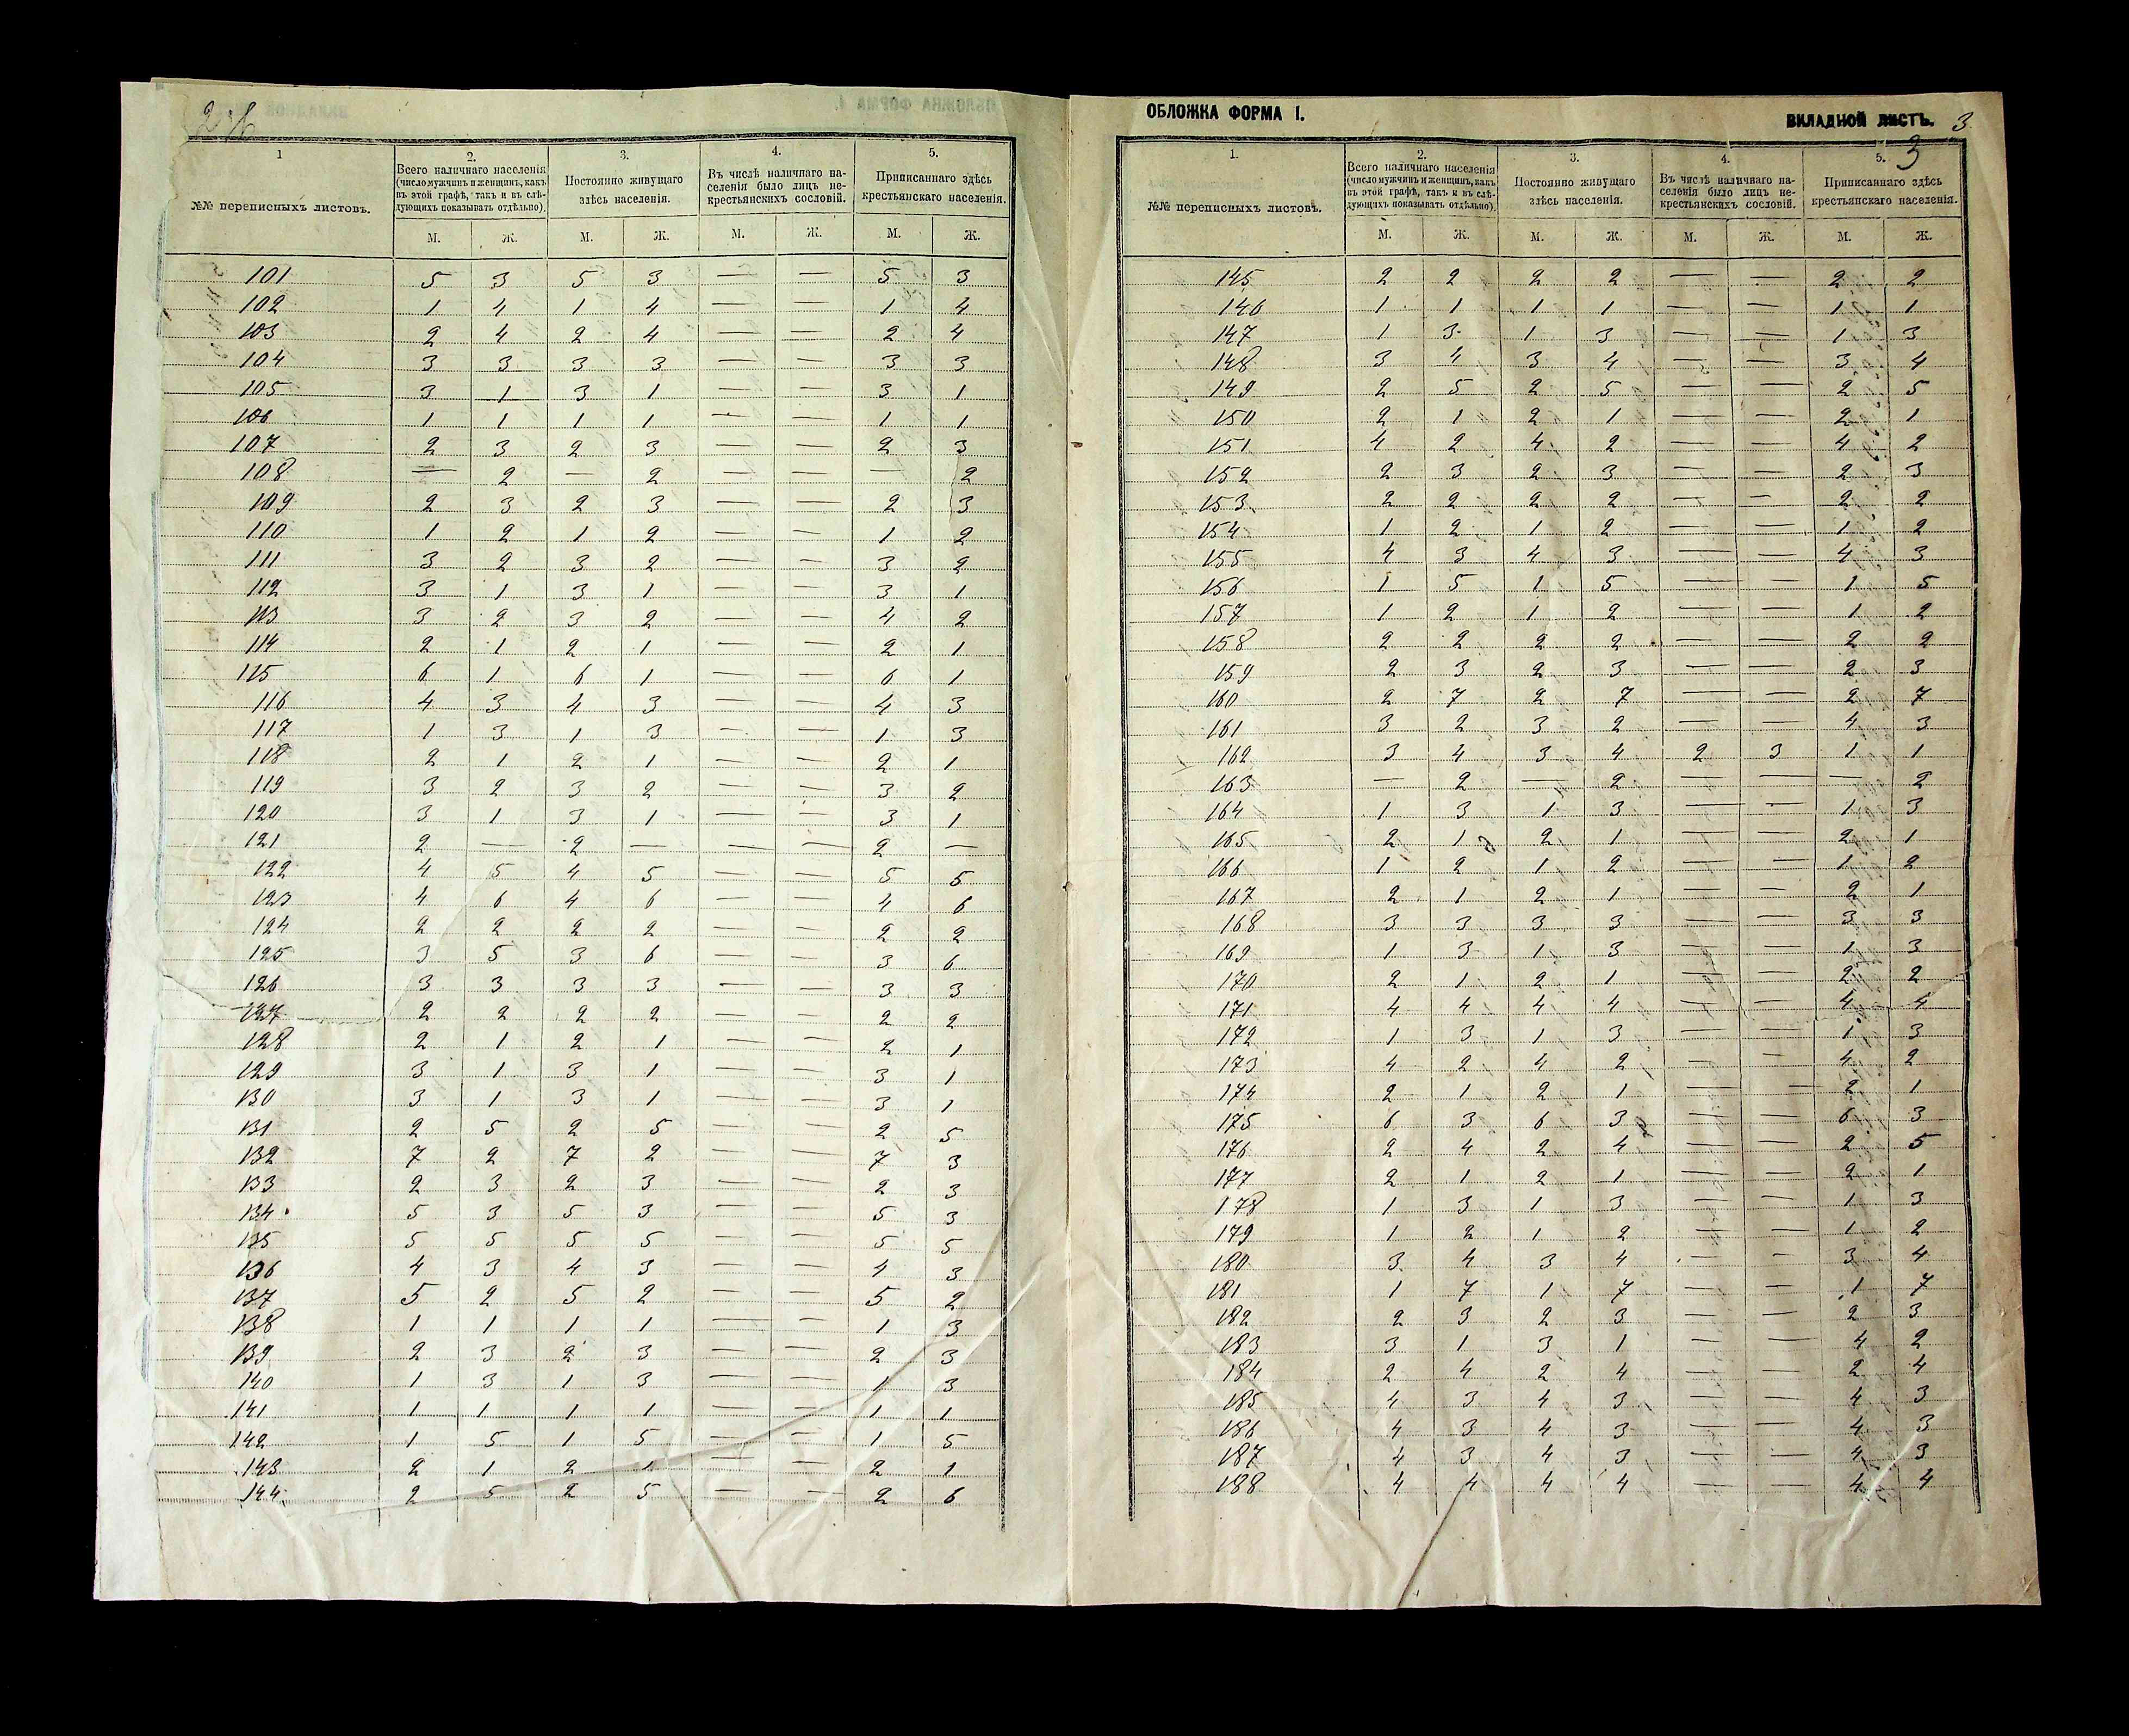 1
2.
3.
4.
5.
№№ переписныхъ листовъ.
Всего наличнаго населенія (число мужчинъ и женщинъ, какъ въ этой графѣ, такъ и въ слѣдующихъ показывать отдѣльно).
Постоянно живущаго здѣсь населенія.
Въ числѣ наличнаго населенія было лицъ некрестьянскихъ сословій.
Приписаннаго здѣсь крестьянскаго населенія.
М. Ж. М. Ж. М. Ж. М. Ж.
101 5 3 5 3 — — 5 3
102 1 4 1 4 — — 1 4
103 2 4 2 4 — — 2 4
104 3 3 3 3 — — 3 3
105 3 1 3 1 — — 3 1
106 1 1 1 1 — — 1 1
107 2 3 2 3 — — 2 3
108 — 2 — 2 — — — 2
109 2 3 2 3 — — 2 3
110 1 2 1 2 — — 1 2
111 3 2 3 2 — — 3 2
112 3 1 3 1 — — 3 1
113 3 2 3 2 — — 4 2
114 2 1 2 1 — — 2 1
115 6 1 6 1 — — 6 1
116 4 3 4 3 — — 4 3
117 1 3 1 3 — — 1 3
118 2 1 2 1 — — 2 1
119 3 2 3 2 — — 3 2
120 3 1 3 1 — — 3 1
121 2 — 2 — — — 2 —
122 4 5 4 5 — — 5 5
123 4 6 4 6 — — 4 6
124 2 2 2 2 — — 2 2
125 3 5 3 6 — — 3 6
126 3 3 3 3 — — 3 3
127 2 2 2 2 — — 2 2
128 2 1 2 1 — — 2 1
129 3 1 3 1 — — 3 1
130 3 1 3 1 — — 3 1
131 2 5 2 5 — — 2 5
132 7 2 7 2 — — 7 3
133 2 3 2 3 — — 2 3
134 5 3 5 3 — — 5 3
135 5 5 5 5 — — 5 5
136 4 3 4 3 — — 4 3
137 5 2 5 2 — — 5 2
138 1 1 1 1 — — 1 3
139 2 3 2 3 — — 2 3
140 1 3 1 3 — — 1 3
141 1 1 1 1 — — 1 1
142 1 5 1 5 — — 1 5
143 2 1 2 1 — — 2 1
144 2 5 2 5 — — 2 6
ОБЛОЖКА ФОРМА I.
ВКЛАДНОЙ ЛИСТЪ. 3
3
1.
2.
3.
4.
5.
№№ переписныхъ листовъ.
Всего наличнаго населенія (число мужчинъ и женщинъ, какъ въ этой графѣ, такъ и въ слѣдующихъ показывать отдѣльно).
Постоянно живущаго здѣсь населенія.
Въ числѣ наличнаго населенія было лицъ некрестьянскихъ сословій.
Приписаннаго здѣсь крестьянскаго населенія.
М. Ж. М. Ж. М. Ж. М. Ж.
145 2 2 2 2 — — 2 2
146 1 1 1 1 — — 1 1
147 1 3 1 3 — — 1 3
148 3 4 3 4 — — 3 4
149 2 5 2 5 — — 2 5
150 2 1 2 1 — — 2 1
151 4 2 4 2 — — 4 2
152 2 3 2 3 — — 2 3
153 2 2 2 2 — — 2 2
154 1 2 1 2 — — 1 2
155 4 3 4 3 — — 4 3
156 1 5 1 5 — — 1 5
157 1 2 1 2 — — 1 2
158 2 2 2 2 — — 2 2
159 2 3 2 3 — — 2 3
160 2 7 2 7 — — 2 7
161 3 2 3 2 — — 4 3
162 3 4 3 4 2 3 1 1
163 — 2 — 2 — — — 2
164 1 3 1 3 — — 1 3
165 2 1 2 1 — — 2 1
166 1 2 1 2 — — 1 2
167 2 1 2 1 — — 2 1
168 3 3 3 3 — — 3 3
169 1 3 1 3 — — 1 3
170 2 1 2 1 — — 2 2
171 4 4 4 4 — — 4 4
172 1 3 1 3 — — 1 3
173 4 2 4 2 — — 4 2
174 2 1 2 1 — — 2 1
175 6 3 6 3 — — 6 3
176 2 4 2 4 — — 2 5
177 2 1 2 1 — — 2 1
178 1 3 1 3 — — 1 3
179 1 2 1 2 — — 1 2
180 3 4 3 4 — — 3 4
181 1 7 1 7 — — 1 7
182 2 3 2 3 — — 2 3
183 3 1 3 1 — — 4 2
184 2 4 2 4 — — 2 4
185 4 3 4 3 — — 4 3
186 4 3 4 3 — — 4 3
187 4 3 4 3 — — 4 3
188 4 4 4 4 — — 4 4